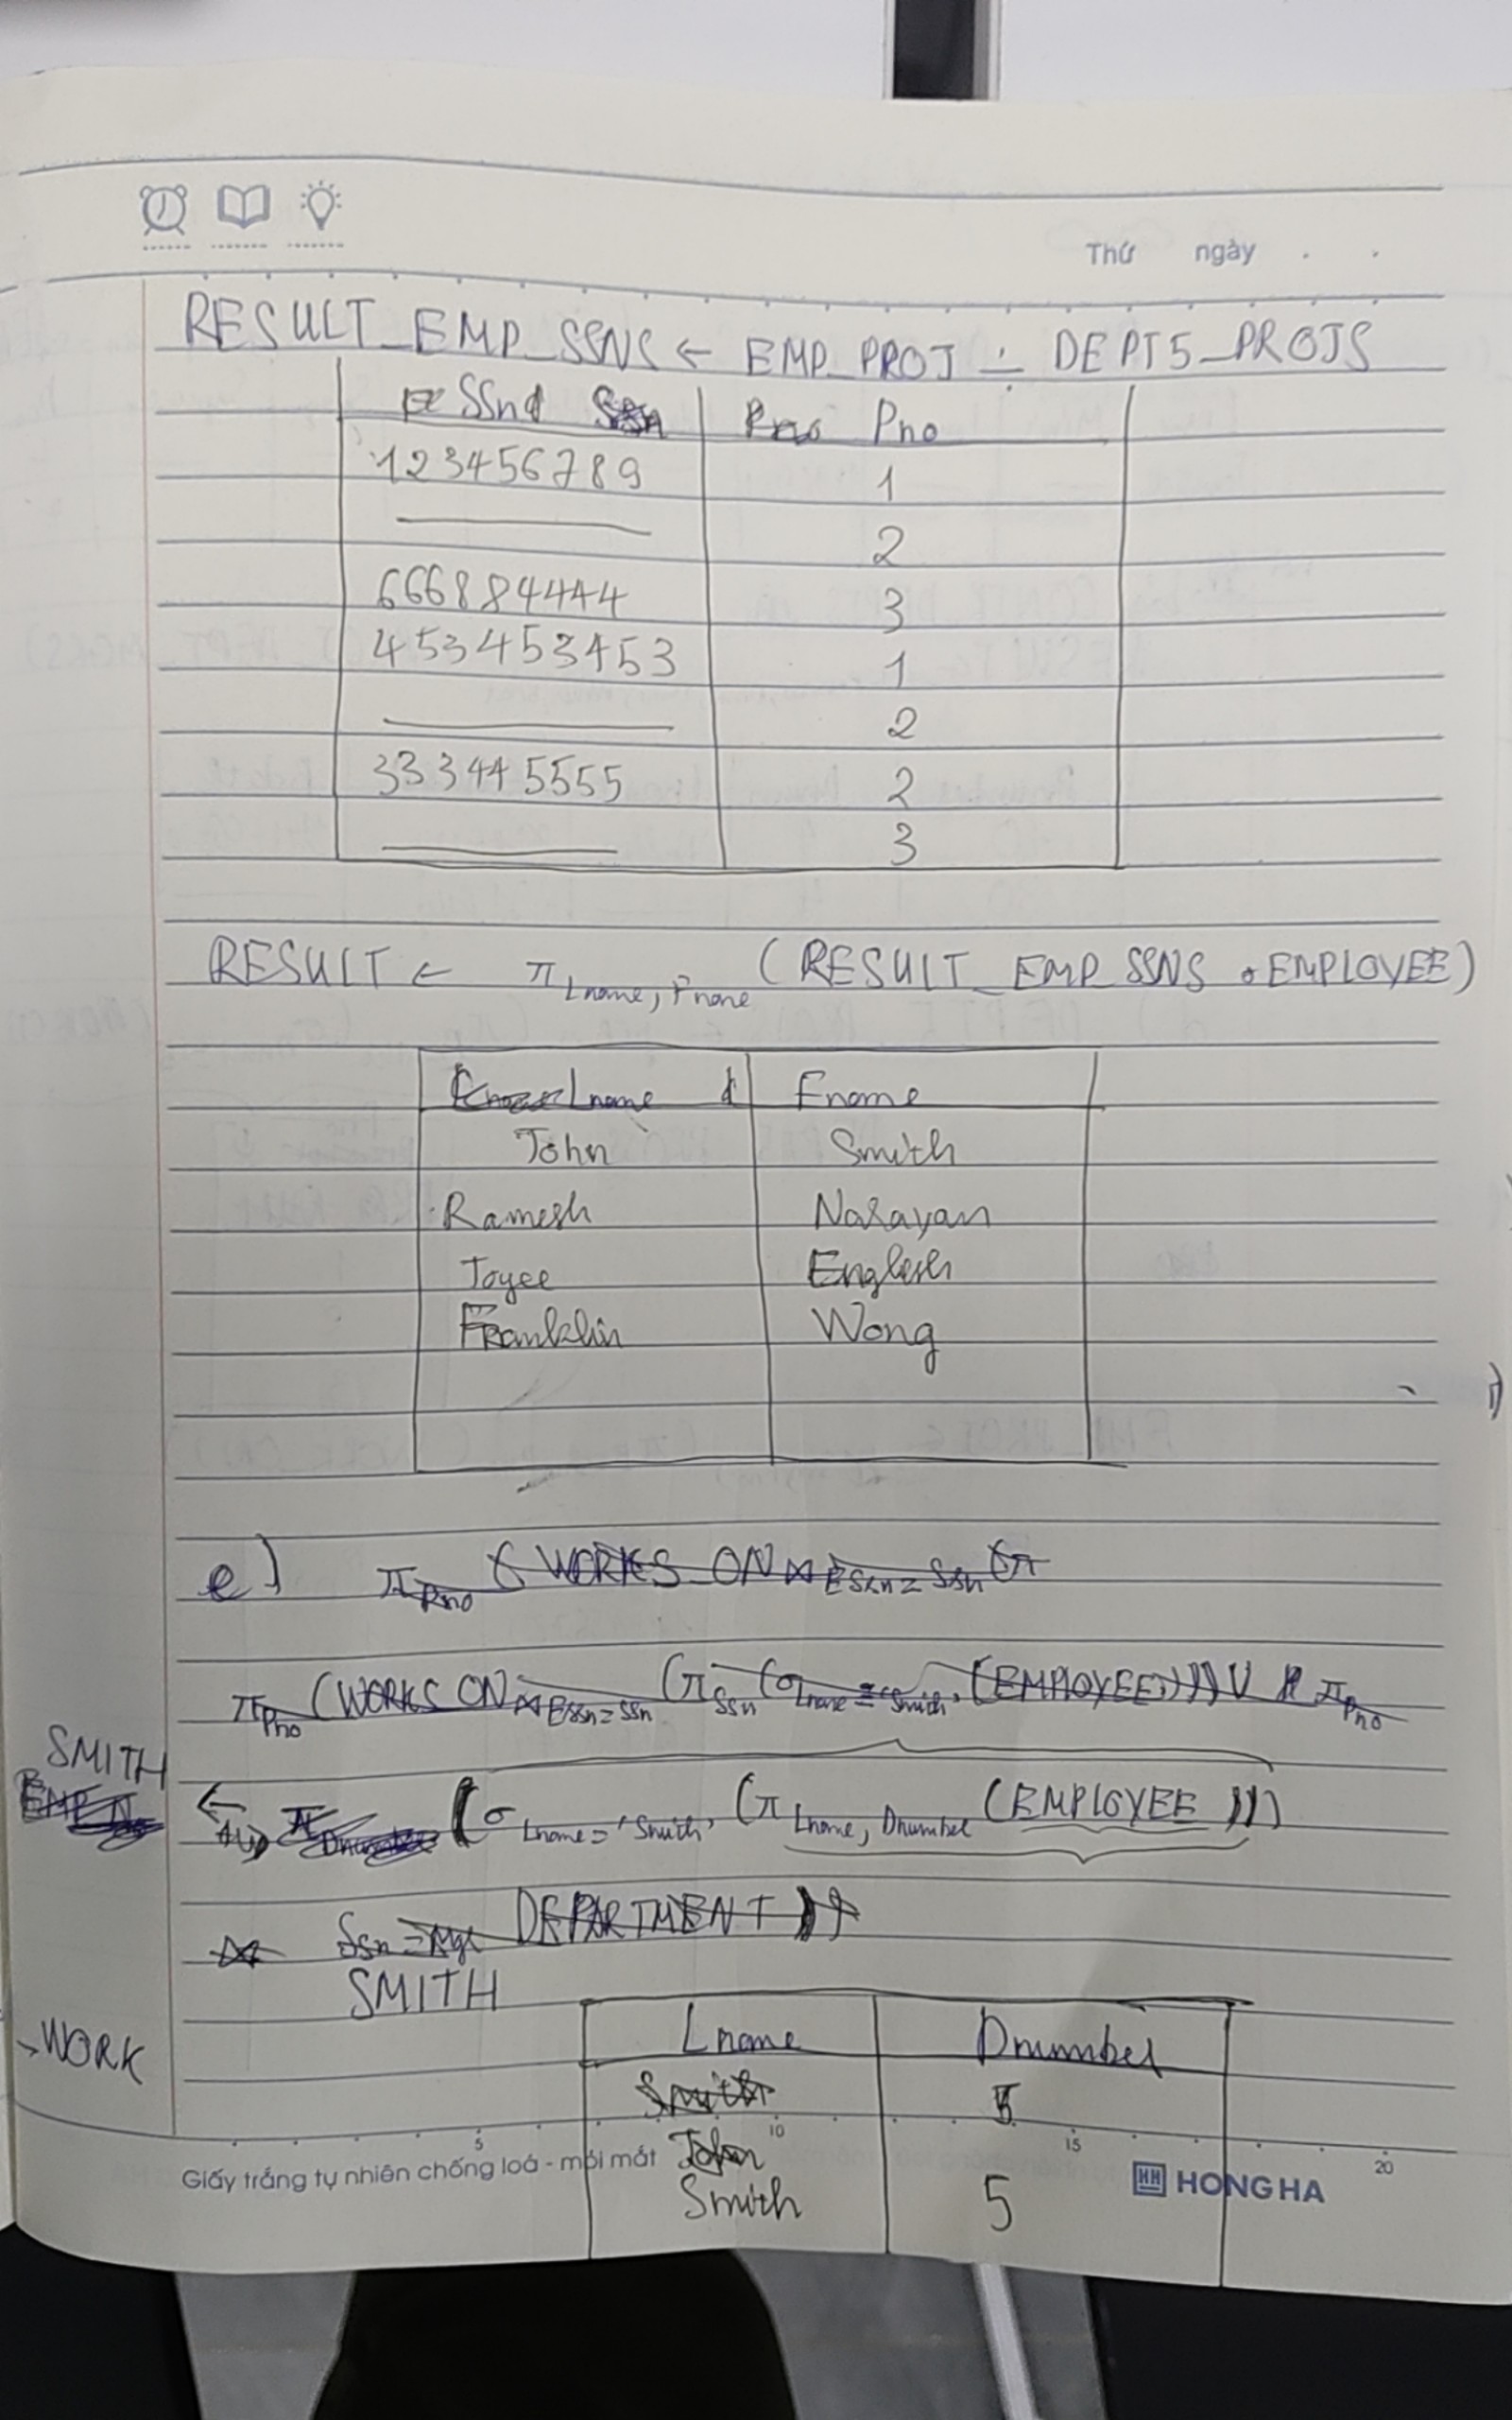 Thứ ngày . .
RESULT_EMP_SSNS ← EMP_PROJ ÷ DEPT5_PROJS
Ssn Pno
123456789 1
2
666884444 3
453453453 1
2
333445555 2
3
RESULT ← π Lname, Fname (RESULT_EMP_SSNS * EMPLOYEE)
Lname Fname
John Smith
Ramesh Narayan
Joyce English
Franklin Wong
e) π Pno (WORKS_ON ⋈ ESsn = Ssn (π
π Pno (WORKS ON ⋈ Essn = Ssn (π Ssn (σ Lname = 'Smith' (EMPLOYEE)))) ∪ π Pno
SMITH ← (σ Lname = 'Smith' (π Lname, Dnumber (EMPLOYEE)))
⋈ DEPARTMENT))
SMITH
Lname Dnumber
WORK
Smith 5
John
Smith 5
5 10 15 20
Giấy trắng tự nhiên chống loá - mỏi mắt HH HONG HA